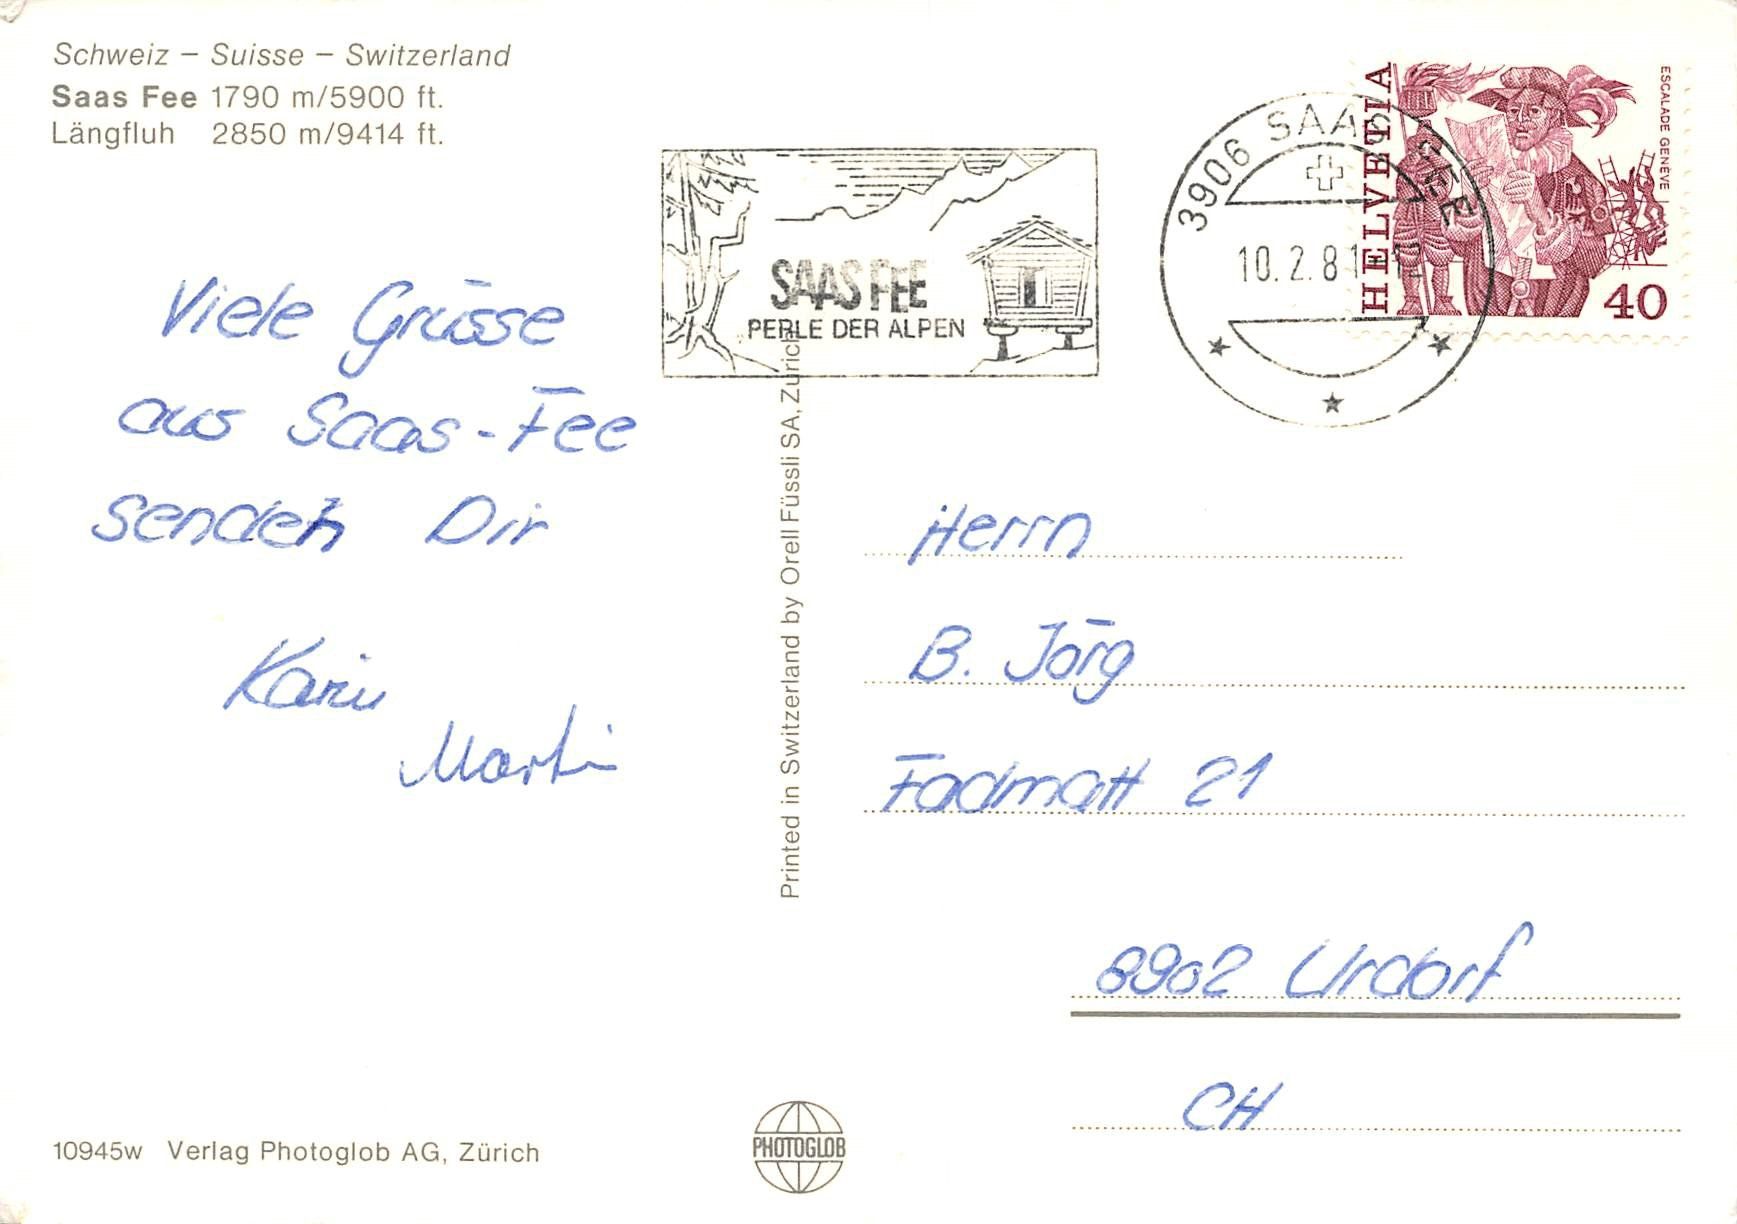 Schweiz – Suisse – Switzerland
Saas Fee 1790 m/5900 ft.
Längfluh 2850 m/9414 ft.
Viele Grüsse
aus Saas-Fee
senden Dir
Karin
Martin
10945w Verlag Photoglob AG, Zürich
PHOTOGLOB
Printed in Switzerland by Orell Füssli SA, Zürich
SAAS FEE
PERLE DER ALPEN
3906 SAAS-FEE
10.2.81
HELVETIA
ESCALADE GENÈVE
40
Herrn
B. Jörg
Fadmatt 21
8902 Urdorf
CH